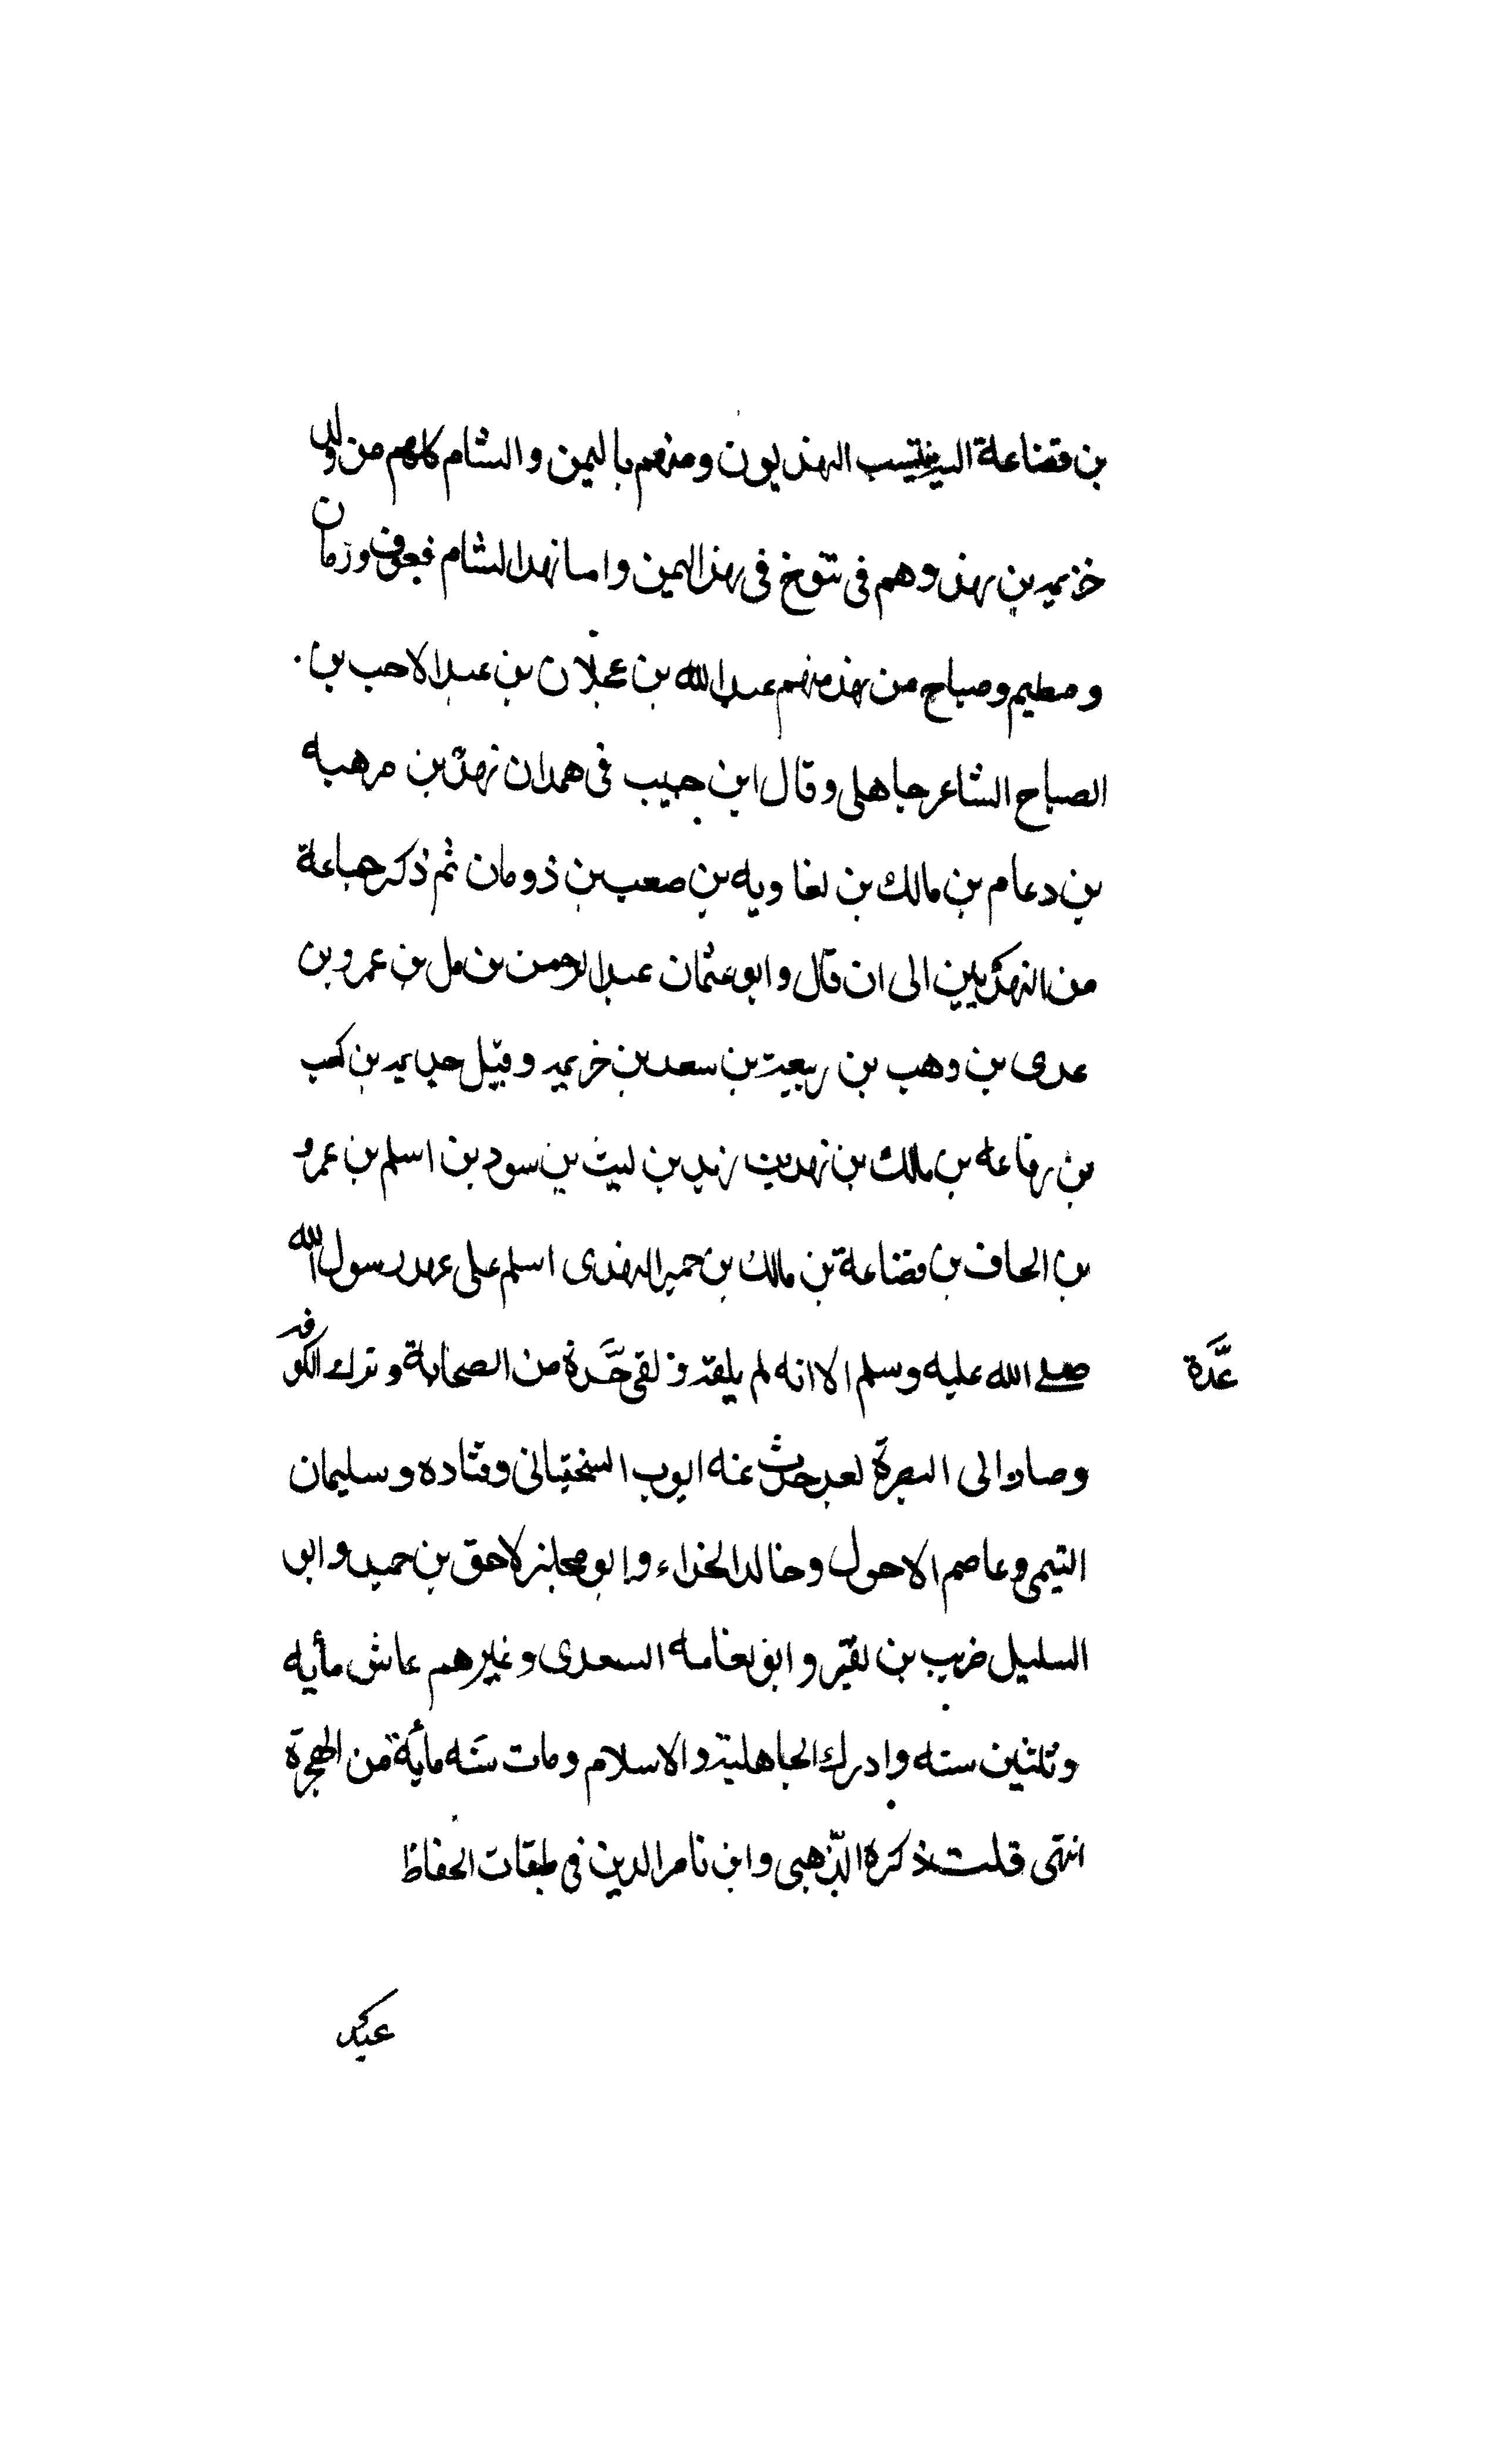 بن قضاعة اليه ينتسب النهديون ومنهم باليمن والشام كلهم من ولد
خزيمه بن نهد وهم فى تنوخ فى نهد اليمن واما نهد الشام فعوف وزمان
ومطيم وصباح من نهد منهم عبد الله بن عجلان بن عبد الاحب بن
الصباح الشاعر جاهلى وقال ابن حبيب فى همدان نهد بن مرهبه
بن دعام بن مالك بن لغاويه بن صعب بن ذومان ثم ذكر جماعة
من النهديين الى ان قال وابو عثمان عبد الرحمن بن مل بن عمرو بن
عدى بن وهب بن ربيعة بن سعد بن خزيمه وقيل جديمه بن كعب
بن رفاعه بن مالك بن نهد بن زيد بن ليث بن سود بن اسلم بن عمرو
بن الحاف بن قضاعة بن مالك بن حمير النهدى اسلم على عهد رسول الله
صلى الله عليه وسلم الا انه لم يلقه ولقى عدة من الصحابة وترك الكوفه
عدَّة
وصار الى البصرة بعد حدث عنه ايوب السختيانى وقتاده وسليمان
التيمى وعاصم الاحول وخالد الحذاء وابو مجلز لاحق بن حميد وابو
السليل ضريب بن نقير وابو نعامه السعدى وغيرهم عاش مأيه
وثلثين سنه وادرك الجاهلية والاسلام ومات سنه مأية من الهجرة
انتهى قلت ذكره الذهبى وابن ناصر الدين فى طبقات الحفاظ